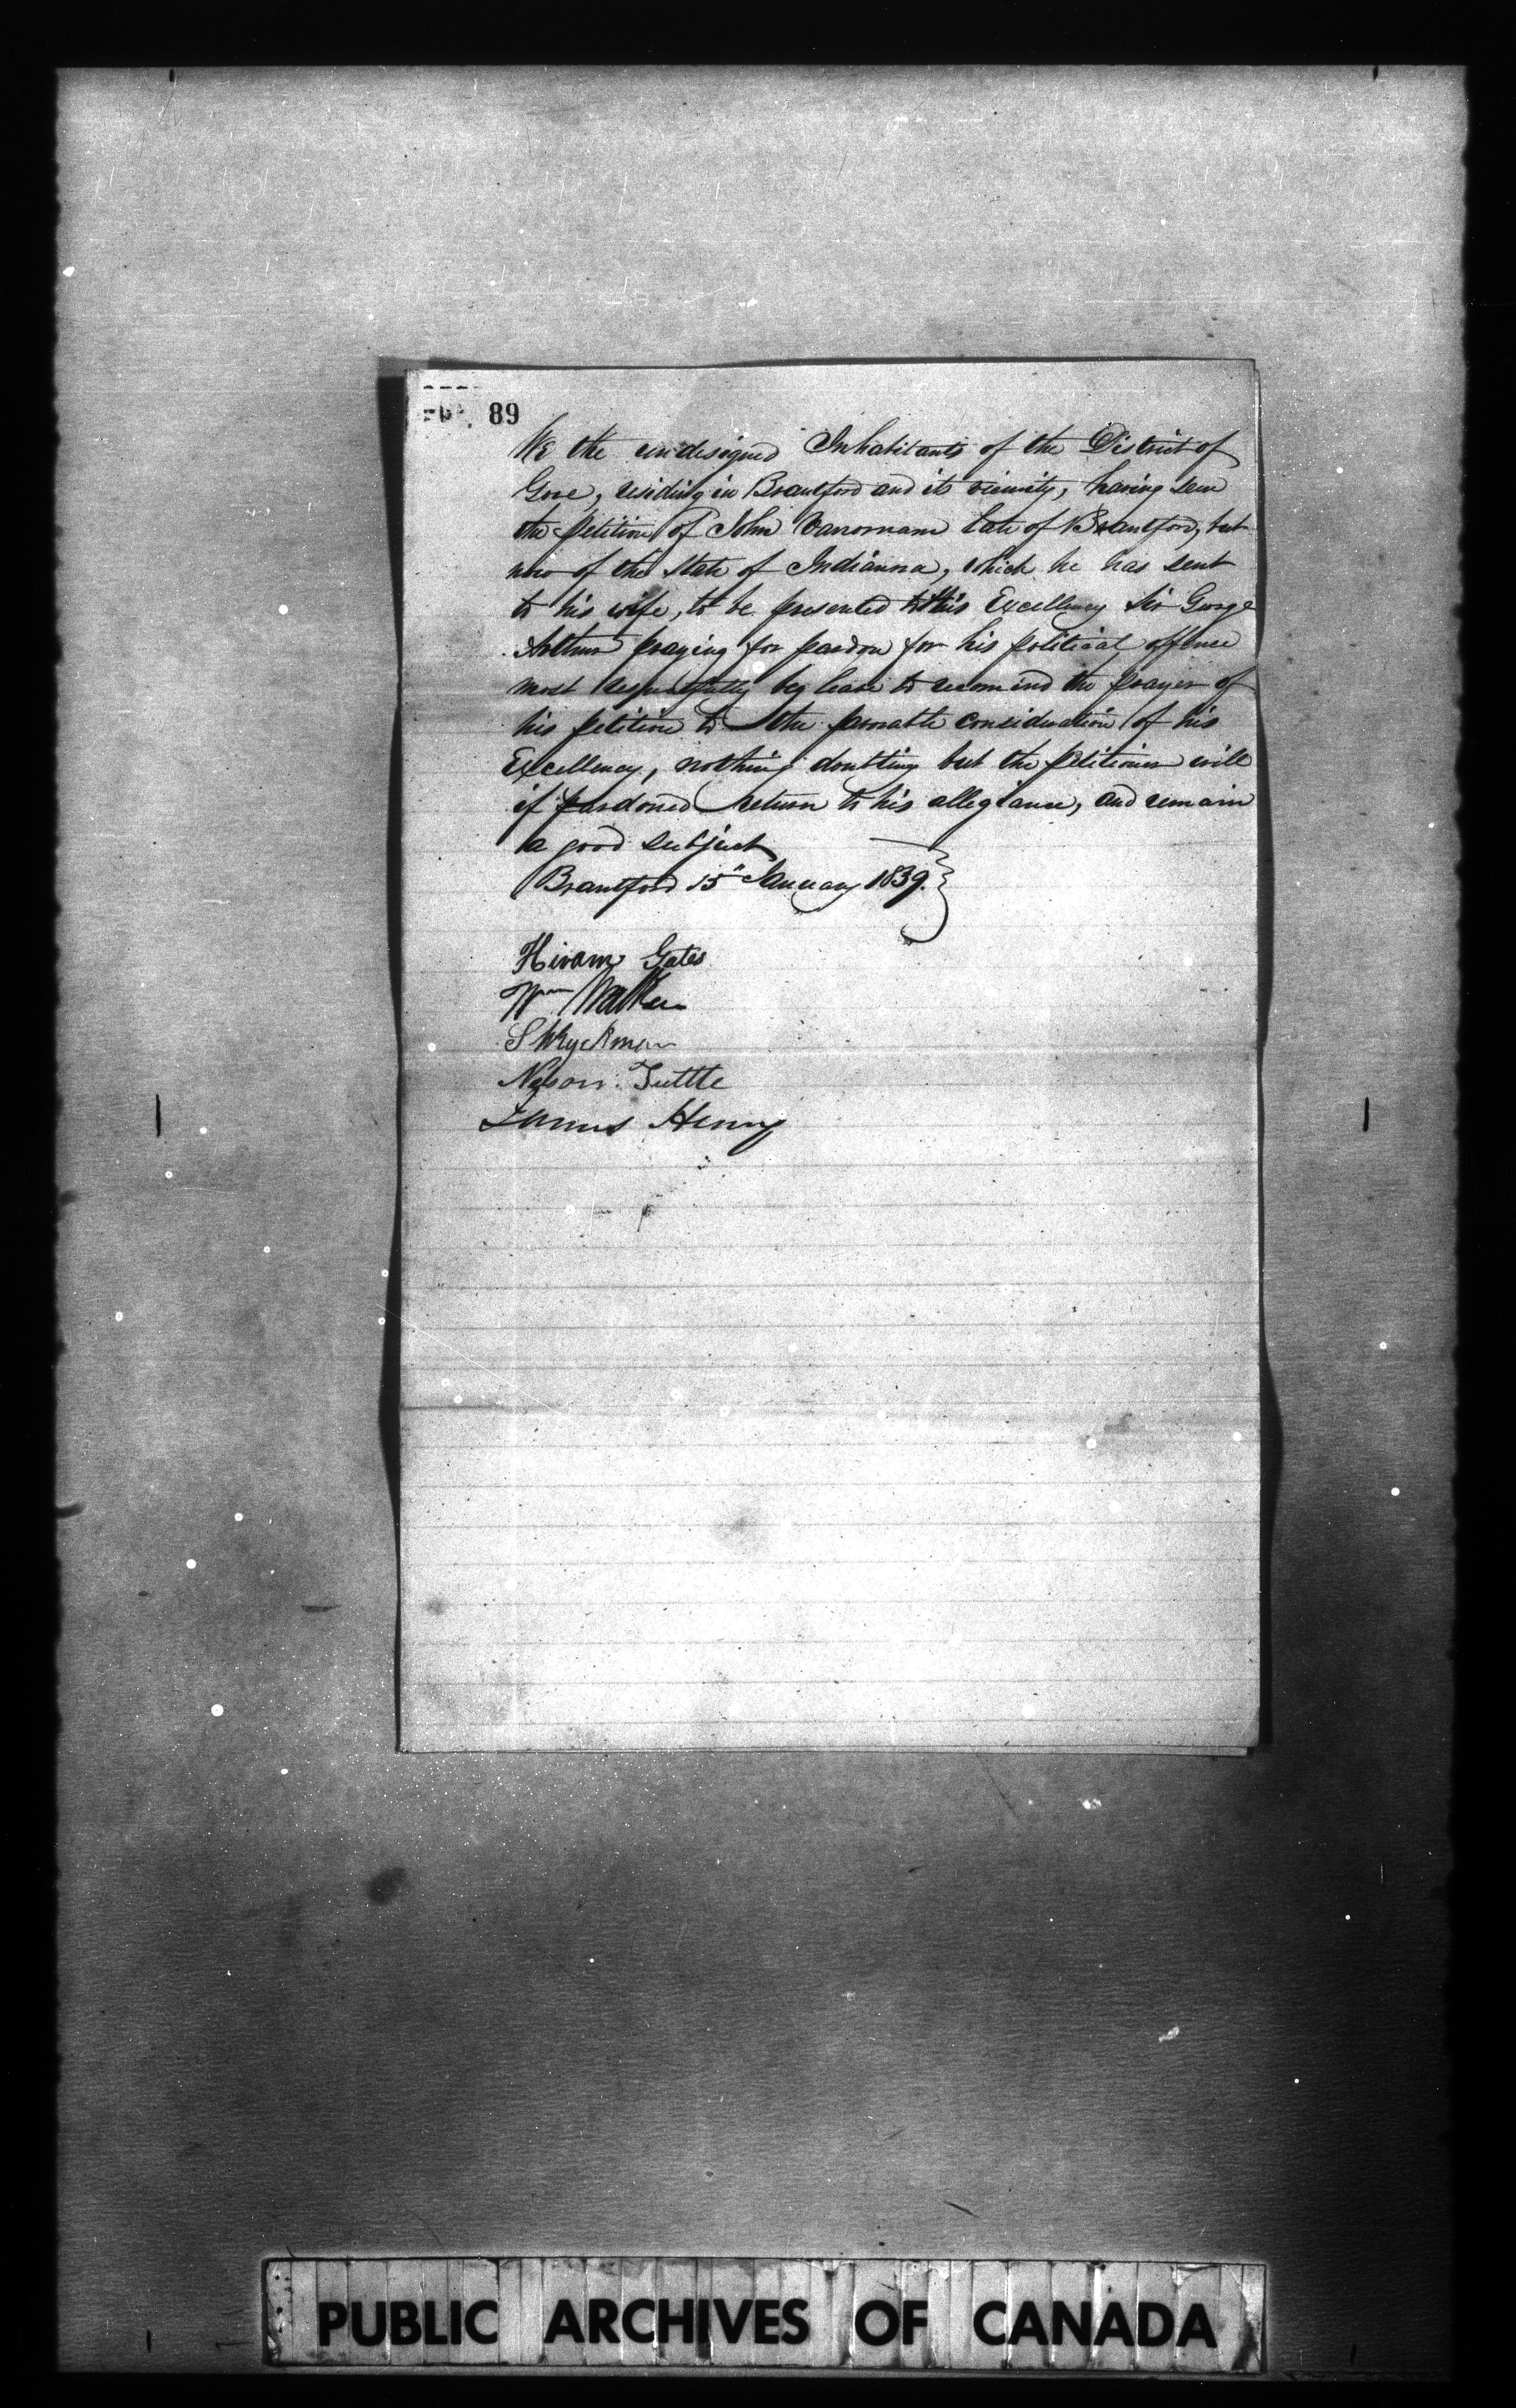 89
We the undesigned Inhabitants of the District of
Gore, residing in Brantford and its vicinity, having seen
the petition of John Vanornam late of Brantford, but
now of the State of Indianna, which he has sent
to his wife, to be presented to His Excellency Sir George
Arthur praying for pardon for his political offence
most respectfully beg leave to recomend the prayer of
his petition to the favorable consideration of his
Excellency, nothing doubting but the petitioner will
if pardoned return to his allegiance, and remain
a good subject
Brantford 15" January 1839.
Hiram Gates
Wm Walker
S Wryckman
Nelson Tuttle
James Henry
PUBLIC ARCHIVES OF CANADA